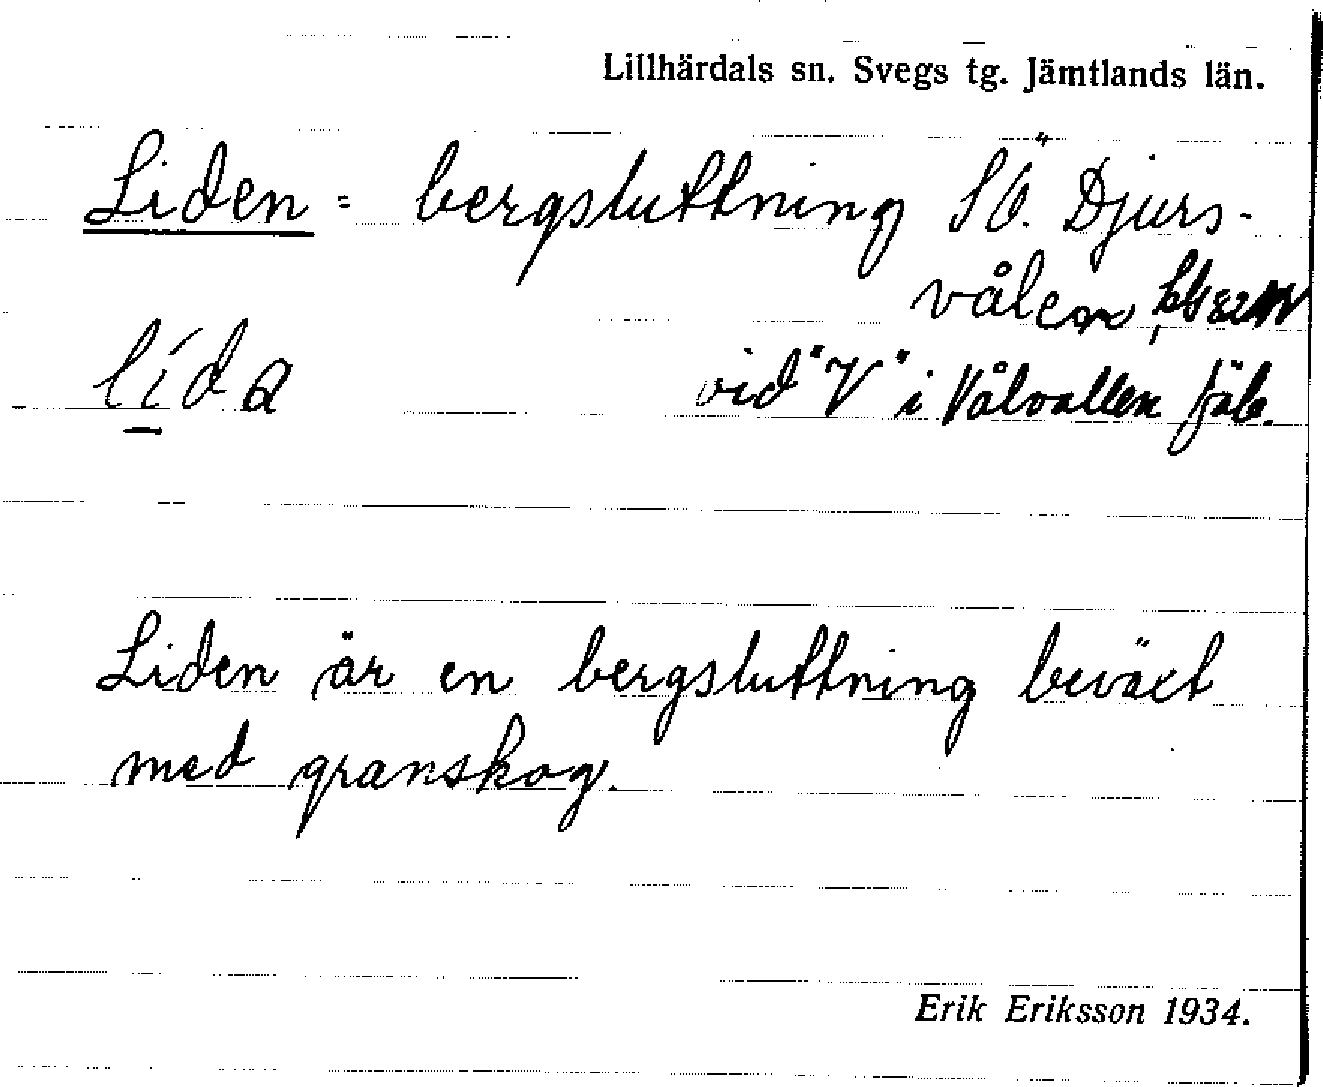 Lillhärdals sn. Svegs tg. Jämtlands län.
Liden = bergsluttning SÖ. Djurs-
vålen
lída
vid "V" i Vålvallen fäb.
Liden är en bergsluttning beväxt
med granskog.
Erik Eriksson 1934.